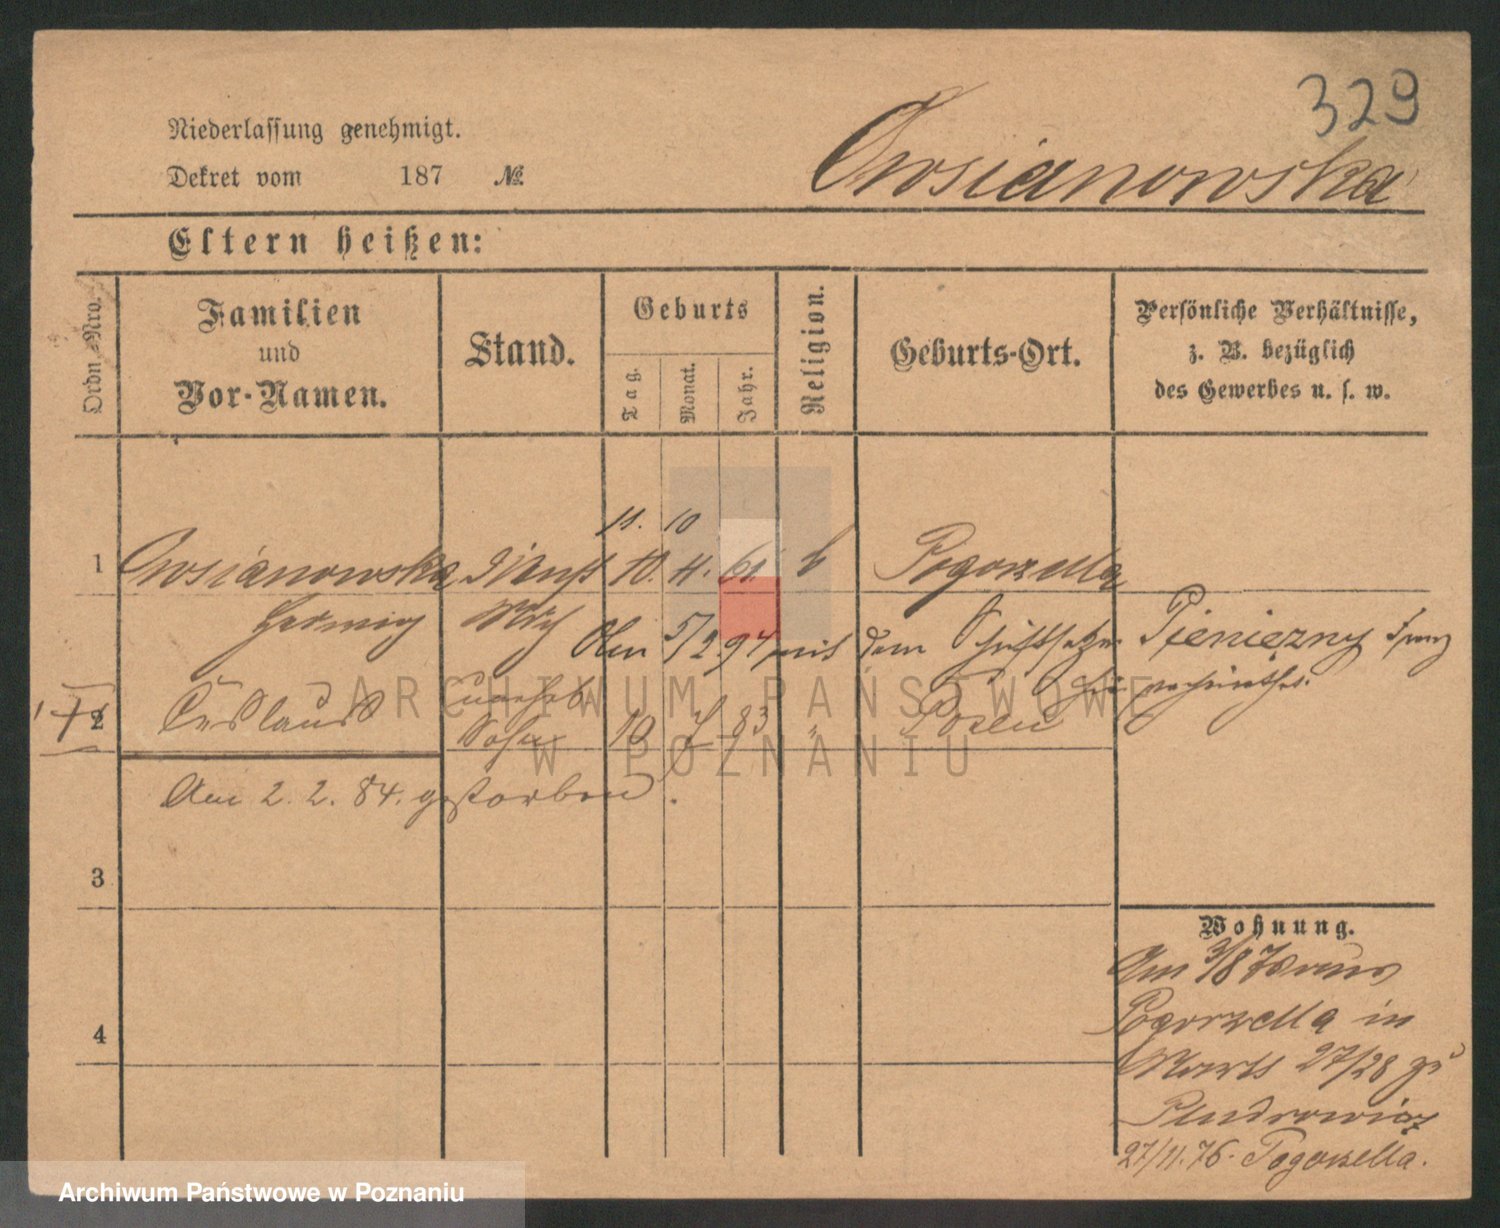 329
Niederlassung genehmigt.
Owsianowska
Dekret vom 187 №
Eltern heißen:
Ordn.-Nro.
Familien
und
Vor-Namen.
Stand.
Geburts
Tag.
Monat.
Jahr.
Religion.
Geburts-Ort.
Persönliche Verhältnisse,
z. B. bezüglich
des Gewerbes u. s. w.
11. 10
1 Owsianowska 10. 61 Pogorzella
Hedwig
Am 5/2 94 mit dem Schriftsetzer Pieniezny Franz
hier verheirathet.
2 Ceslaus unehel. Sohn 10 7 83 " Posen
Am 2. 2. 84. gestorben.
3
4
Wohnung.
Am 3/8 aus
Pogorzella in
Markt 27/28 zu
27/11. 76. Pogorzella.
ARCHIWUM PAŃSTWOWE
W POZNANIU
Archiwum Państwowe w Poznaniu